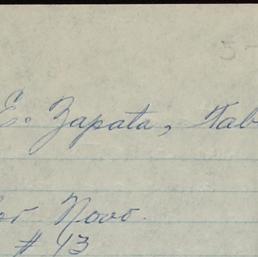 5-
E. Zapata, Tab
or Novo.
# 13